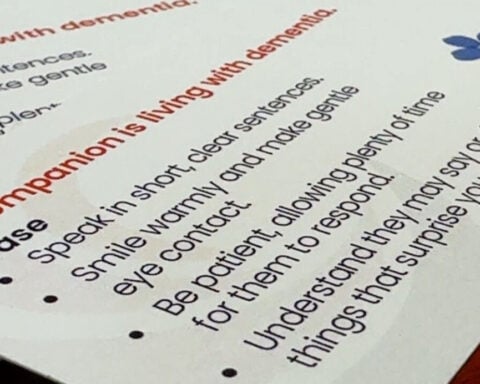 with dementia.
ke gentle
ompanion is living with dementia.
ase
• Speak in short, clear sentences.
• Smile warmly and make gentle
eye contact.
• Be patient, allowing plenty of time
for them to respond.
• Understand they may say or
things that surprise you